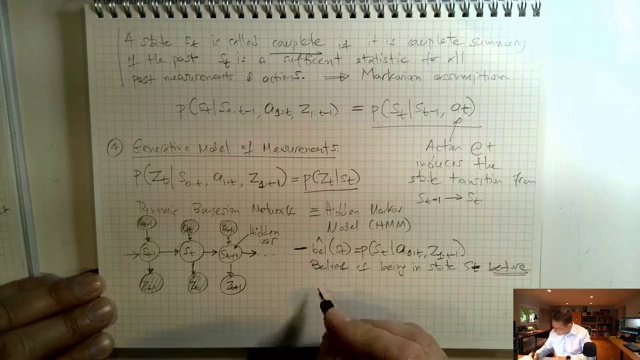 A state St is called complete if it is complete summary
of the past St is a sufficent statistic for all
past measurements & actions. ⟹ Markovian assumption
p(St|S0:t-1, a1:t, Z1:t-1) = p(St|St-1, at)
Action @ t
induces the
state transition from
St-1 → St
④ Generative Model of Measurements
p(Zt|S0:t, a1:t, Z1:t-1) = p(Zt|St)
Dynamic Bayesian Network ≡ Hidden Markov
Model (HMM)
hidden
var
St-1 St St+1 ...
Zt-1 Zt Zt+1
- bel(St) = p(St|a1:t, Z1:t-1)
Belief of being in state St before